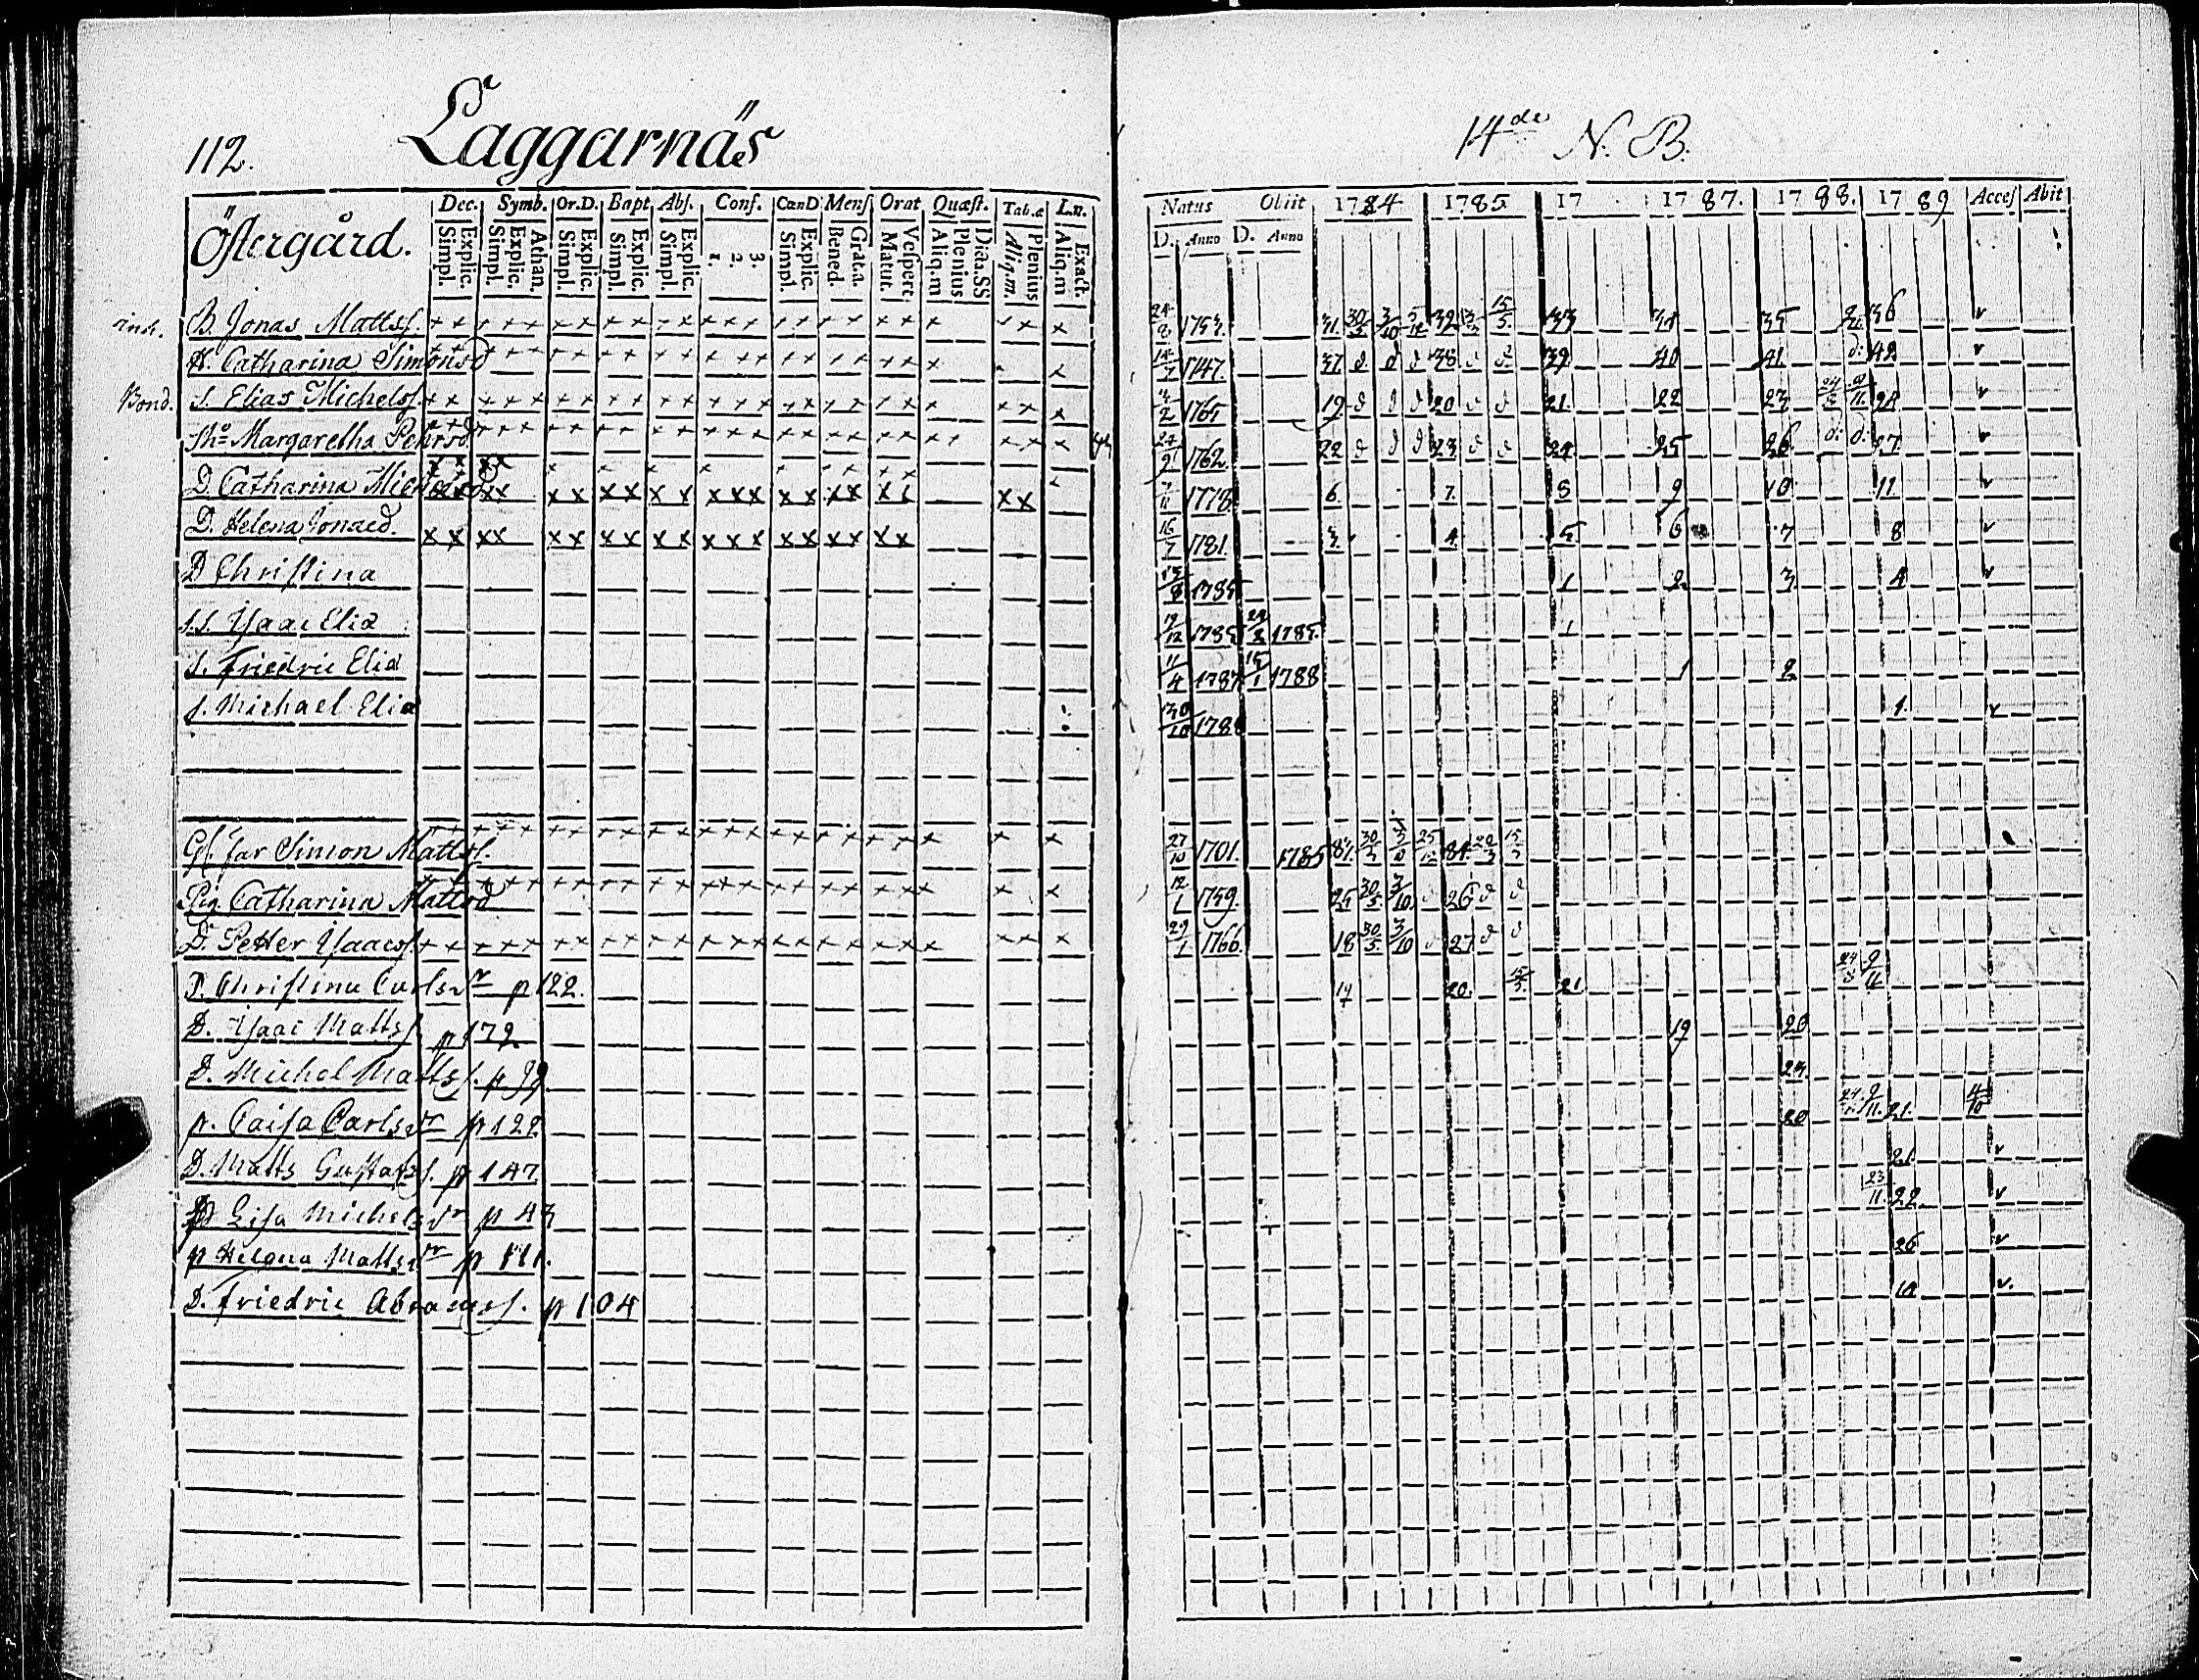 112.
Laggarnäs
14de N. B.
Östergård.
Dec. Symb. Or.D. Bapt Abs. Conf. CœnD Mens Orat Quæst. Tab.æ L.n.
Simpl. Explic. Simpl. Explic. Athan. Simpl. Explic. Simpl. Explic. Simpl. Explic. 1. 2. 3. Simpl. Explic. Bened. Grat.a. Matut. Vespert. Aliq.m Plenius Dicta.SS Aliq.m. Plenius Aliq.m Exact.
Natus Obiit 1784 1785 17 1787. 1788. 1789 Acces Abit
D. Anno D. Anno
inh. B. Jonas Mattss. 24/8 1753. 31 30/5 3/10 5/12 32 15/5 33 34 35 36 v
H. Catharina Simonsd 14/7 1747. 37 d d d 38 d d 39 40 41 d: 42 v
Bond. S. Elias Michelss. 1765 19 d d d 20 d d 21 22 23 24 v
Margaretha Pehrsd 24/9 1762 22 d d d 23 d d 24 25 26 d: d: 27 v
D. Catharina Michelsd 1778 6 7 8 9 10 11 v
D. Helena Jonaed. 16/7 1781 3 4 5 6 7 8 v
D Christina 1785 1 2 3 4 v
S.S. Ysaac Eliæ 1785 1785. 1
S. Friedric Eliæ 11/4 1787 15/1 1788 1 2
S. Michael Eliæ 30/10 1788 1. v
Simon Mattss. 27/10 1701. 1785 83 30/5 3/10 84 15/5
Pig. Catharina Mattsd 12/1 1759. 25 30/5 3/10 d 26 d d
D. Petter Ysaacss. 29/1 1766. 18 30/5 3/10 d 27 d d
P. Christina Carlsdr p 122. 19 20. 15/5 21 9/11
D. Ysaac Mattss. p 172. 19 20
D. Michel Mattss. p 99. 24
p. Caisa Carlsdr p 122 20 9/11. 21. 4/10
D. Matts Gustafss. p 147 21 v
p Lisa Michelsdr p 43 23/11. 22 v
p Helena Mattsdr p 111. 26 v
D. Friedric Abramss. p 104 v.